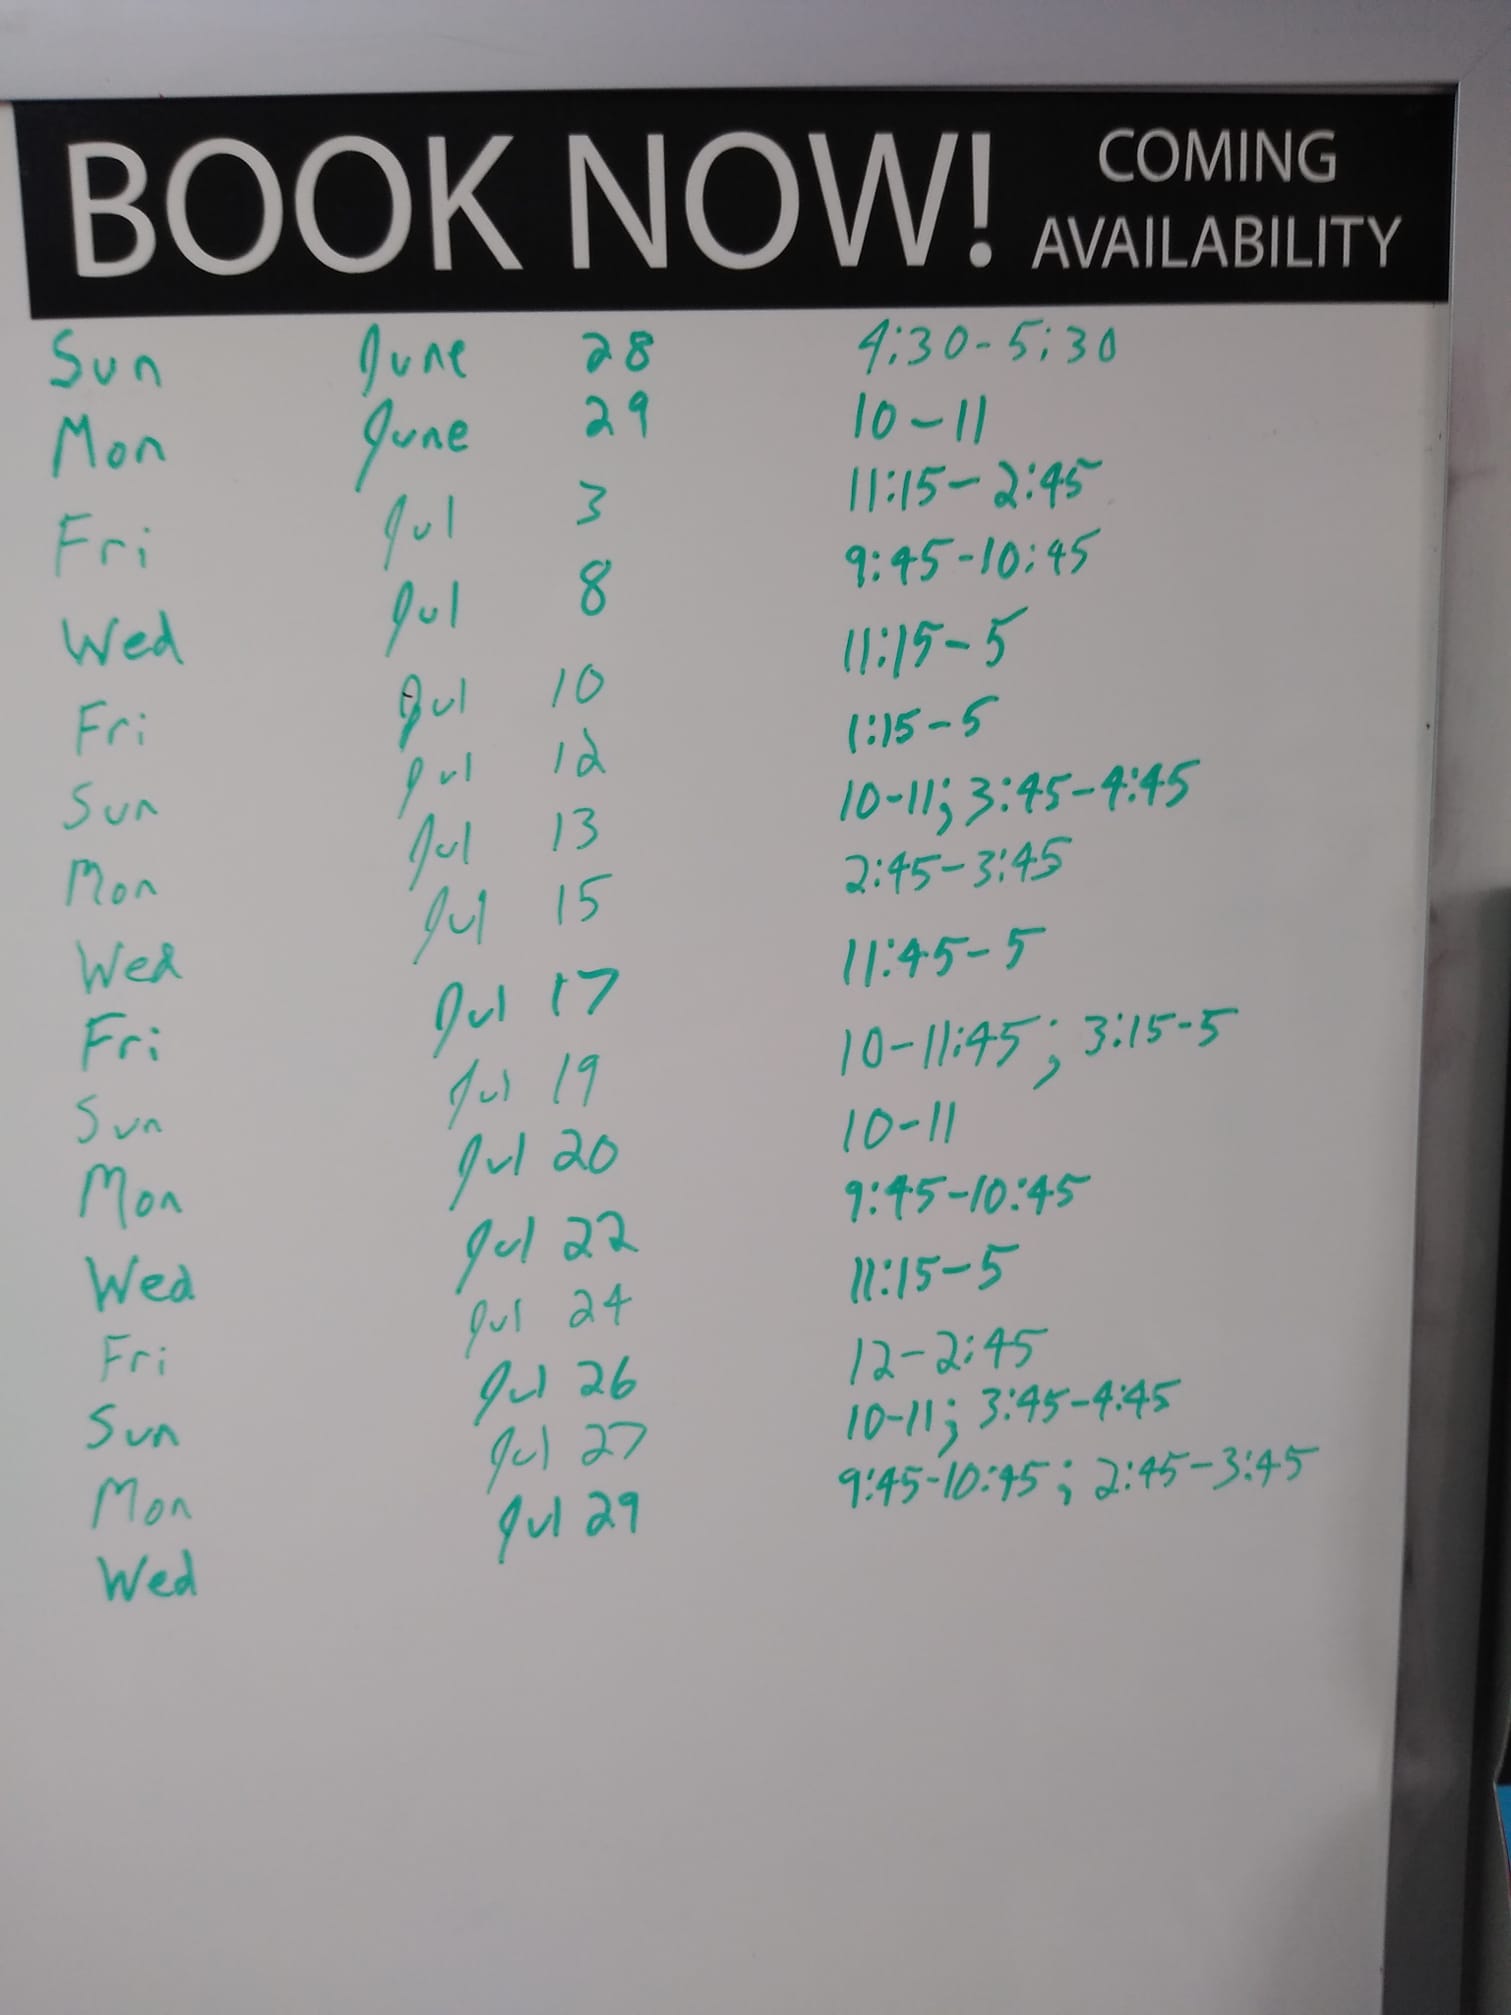 BOOK NOW! COMING AVAILABILITY
Sun June 28 4:30-5:30
Mon June 29 10-11
Fri Jul 3 11:15-2:45
Wed Jul 8 9:45-10:45
Fri Jul 10 11:15-5
Sun Jul 12 1:15-5
Mon Jul 13 10-11; 3:45-4:45
Wed Jul 15 2:45-3:45
Fri Jul 17 11:45-5
Sun Jul 19 10-11:45; 3:15-5
Mon Jul 20 10-11
Wed Jul 22 9:45-10:45
Fri Jul 24 11:15-5
Sun Jul 26 12-2:45
Mon Jul 27 10-11; 3:45-4:45
Wed Jul 29 9:45-10:45; 2:45-3:45